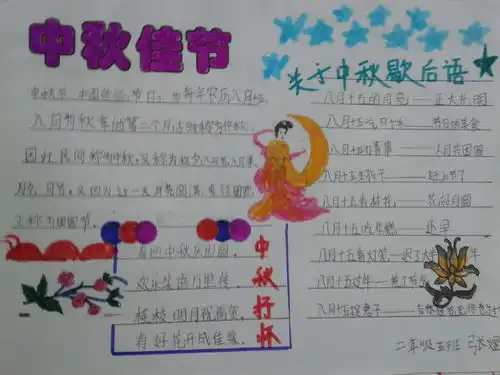 中秋佳节
中秋节 中国传统节日,为每年农历八月十五
八月为秋季的第二个月,古时称为仲秋,
因此民间称为中秋,又称为秋夕、八月节、八月半、
月夕、月节,又因为这一天月亮圆满,象征团圆,
又称为团圆节。
看的中秋庆团圆,
欢乐笑语万里传。
桂枝明月祝福笑,
好花开成佳缘。
中秋抒怀
关于中秋歇后语
八月十五的月亮——正大光明
八月十五吃月饼——节日的美食
八月十五办喜事——人月共团圆
八月十五生孩子——赶上节了
八月十五看桂花——花好月圆
八月十五吃年糕——还早
八月十五看灯笼——迟了
八月十五过年——
八月十五捉兔子——
二年级五班